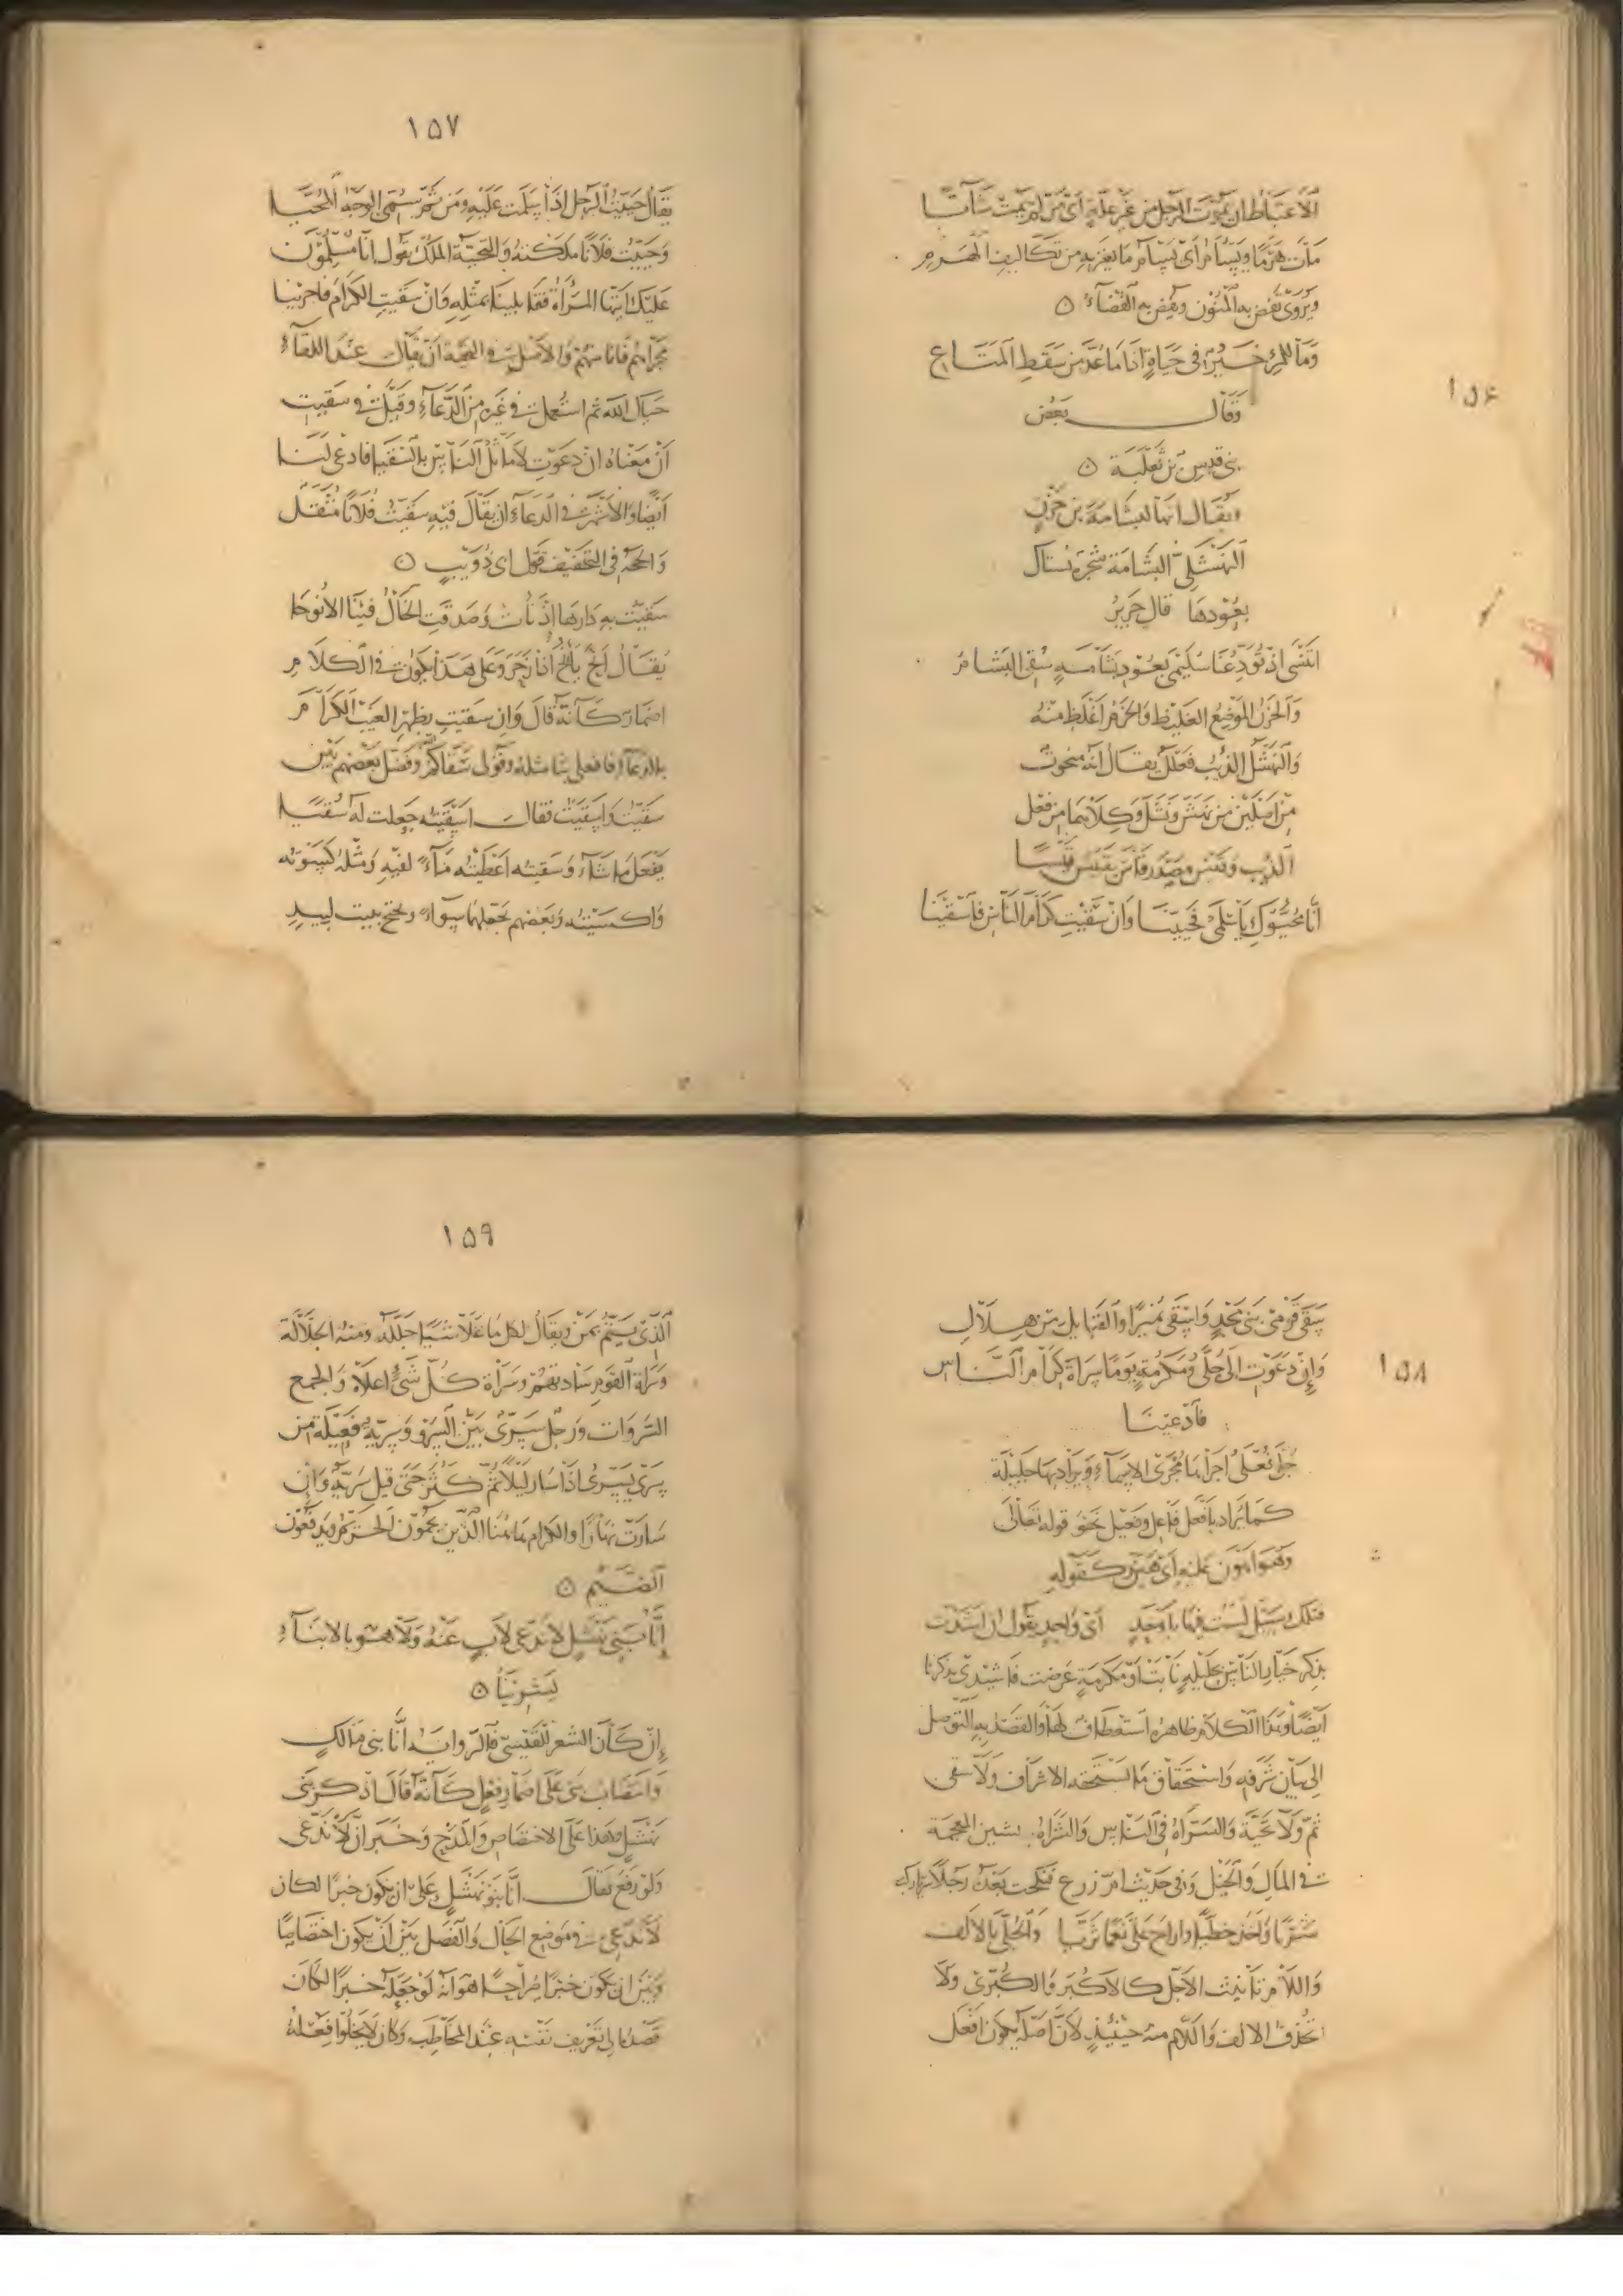 ١٥٦
الاعتباط ان يموت الرجل من غير علة اي من لم يمت شابا
مات هرما ويسأم اي يسأم ما يعتريه من تكاليف الهرم
ويروى تفض به المنون وتفض به القضاء
وما للمرء خير في حياة اذا ما عد من سقط المتاع
وقال بعض
بني قيس بن ثعلبة
ويقال انها لبشامة بن حزن
النهشلي البشامة شجرة يستاك
بعودها قال جرير
اتنسى اذ تودعنا سليمى بعود بشامة سقي البشام
والحزن الموضع الغليظ والحزم اغلظ منه
والنهشل الذئب فعلل يقال انه منحوت
من اصلين من نهش ونشل وكلاهما من فعل
الذئب وقيس مصدر قاس يقيس قيسا
انا محيوك يا سلمى فحيينا وان سقيت كرام الناس فاسقينا
١٥٧
يقال حييت الرجل اذا سلمت عليه ومن ثم سمي الوجه المحيا
وحييت فلانا ملكته والتحية الملك يقول انا مسلمون
عليك ايتها المرأة فقابلينا بمثله وان سقيت الكرام فاجرينا
مجراهم فانا منهم والاصل في التحية ان يقال عند اللقاء
حياك الله ثم استعملت في غيره من الدعاء وقيل في سقيت
ان معناه ان دعوت لاماثل الناس بالسقيا فادعي لنا
ايضا والاشهر في الدعاء ان يقال فيه سقيت فلانا مثقل
والحجة في التخفيف قول ابي ذويب
سقيت به دارها اذ نأت وصدقت الخال فينا الانوحا
يقال انح يانح اذا زحر وعلى هذا يكون في الكلام
اضمار كانه قال وان سقيت بظهر الغيب الكرام
بالدعاء فافعلي بنا مثله وقولي سقاكم وفصل بعضهم بين
سقيت واسقيت فقال اسقيته جعلت له سقيا
يفعل ما شاء وسقيته اعطيته ماء لفيه ومثله كسوته
واكسيته وبعضهم يجعلهما سواء ويحتج ببيت لبيد
١٥٨
سقى قومي بني مجد واسقى نميرا والقبايل من هلال
وإن دعوت الى جلى ومكرمة يوما سراة كرام الناس
فادعينا
جلى فعلى اجراها مجرى الاسماء ويراد بها جليلة
كما يراد بافعل فاعل وفعيل نحو قوله تعالى
وهو اهون عليه اي هين وكقوله
فتلك سبيل لست فيها باوحد اي واحد يقول ان اشدت
بذكر خيار الناس بجليلة نابت او مكرمة عرضت فاشيدي بذكرنا
ايضا وهذا الكلام ظاهره استعطاف لها والقصد به التوصل
الى بيان شرفه واستحقاق ما يستحقه الاشراف ولا سقي
ثم ولا تحية والسراة في الناس والشراة بشين المعجمة
في المال والخيل وفي حديث ام زرع فنكحت بعده رجلا
شريا واخذ خطيا واراح علي نعما ثريا والجلى بالالف
واللام تانيث الاجل كالاكبر والكبرى ولا
تحذف الالف واللام منه حينئذ لان اصله يكون افعل
١٥٩
الذي يتم بمن ويقال لكل ما علا شيا جلله ومنه الجلالة
وسراة القوم ساداتهم وسراة كل شيء اعلاه والجمع
السروات ورجل سري بين السرو وسرية فعيلة من
سرى يسري اذا سار ليلا ثم كثر حتى قيل سرية وان
سارت نهارا والكرام هاهنا الذين يحمون الحريم ويدفعون
الضيم
إنا بني نهشل لا ندعي لاب عنه ولا هو بالابناء
يشرينا
إن كان الشعر للقيسي فالرواية انا بني مالك
وانتصاب بني على اضمار فعل كانه قال اذكر بني
نهشل وهذا على الاختصاص والمدح وخبر ان لا ندعي
ولو رفع فقال انا بنو نهشل على ان يكون خبرا لكان
لا ندعي في موضع الحال والفصل بين ان يكون اختصاصا
وبين ان يكون خبرا صراحا هو انه لو جعله خبرا لكان
قصده الى تعريف نفسه عند المخاطب وكان لا يخلو فعله